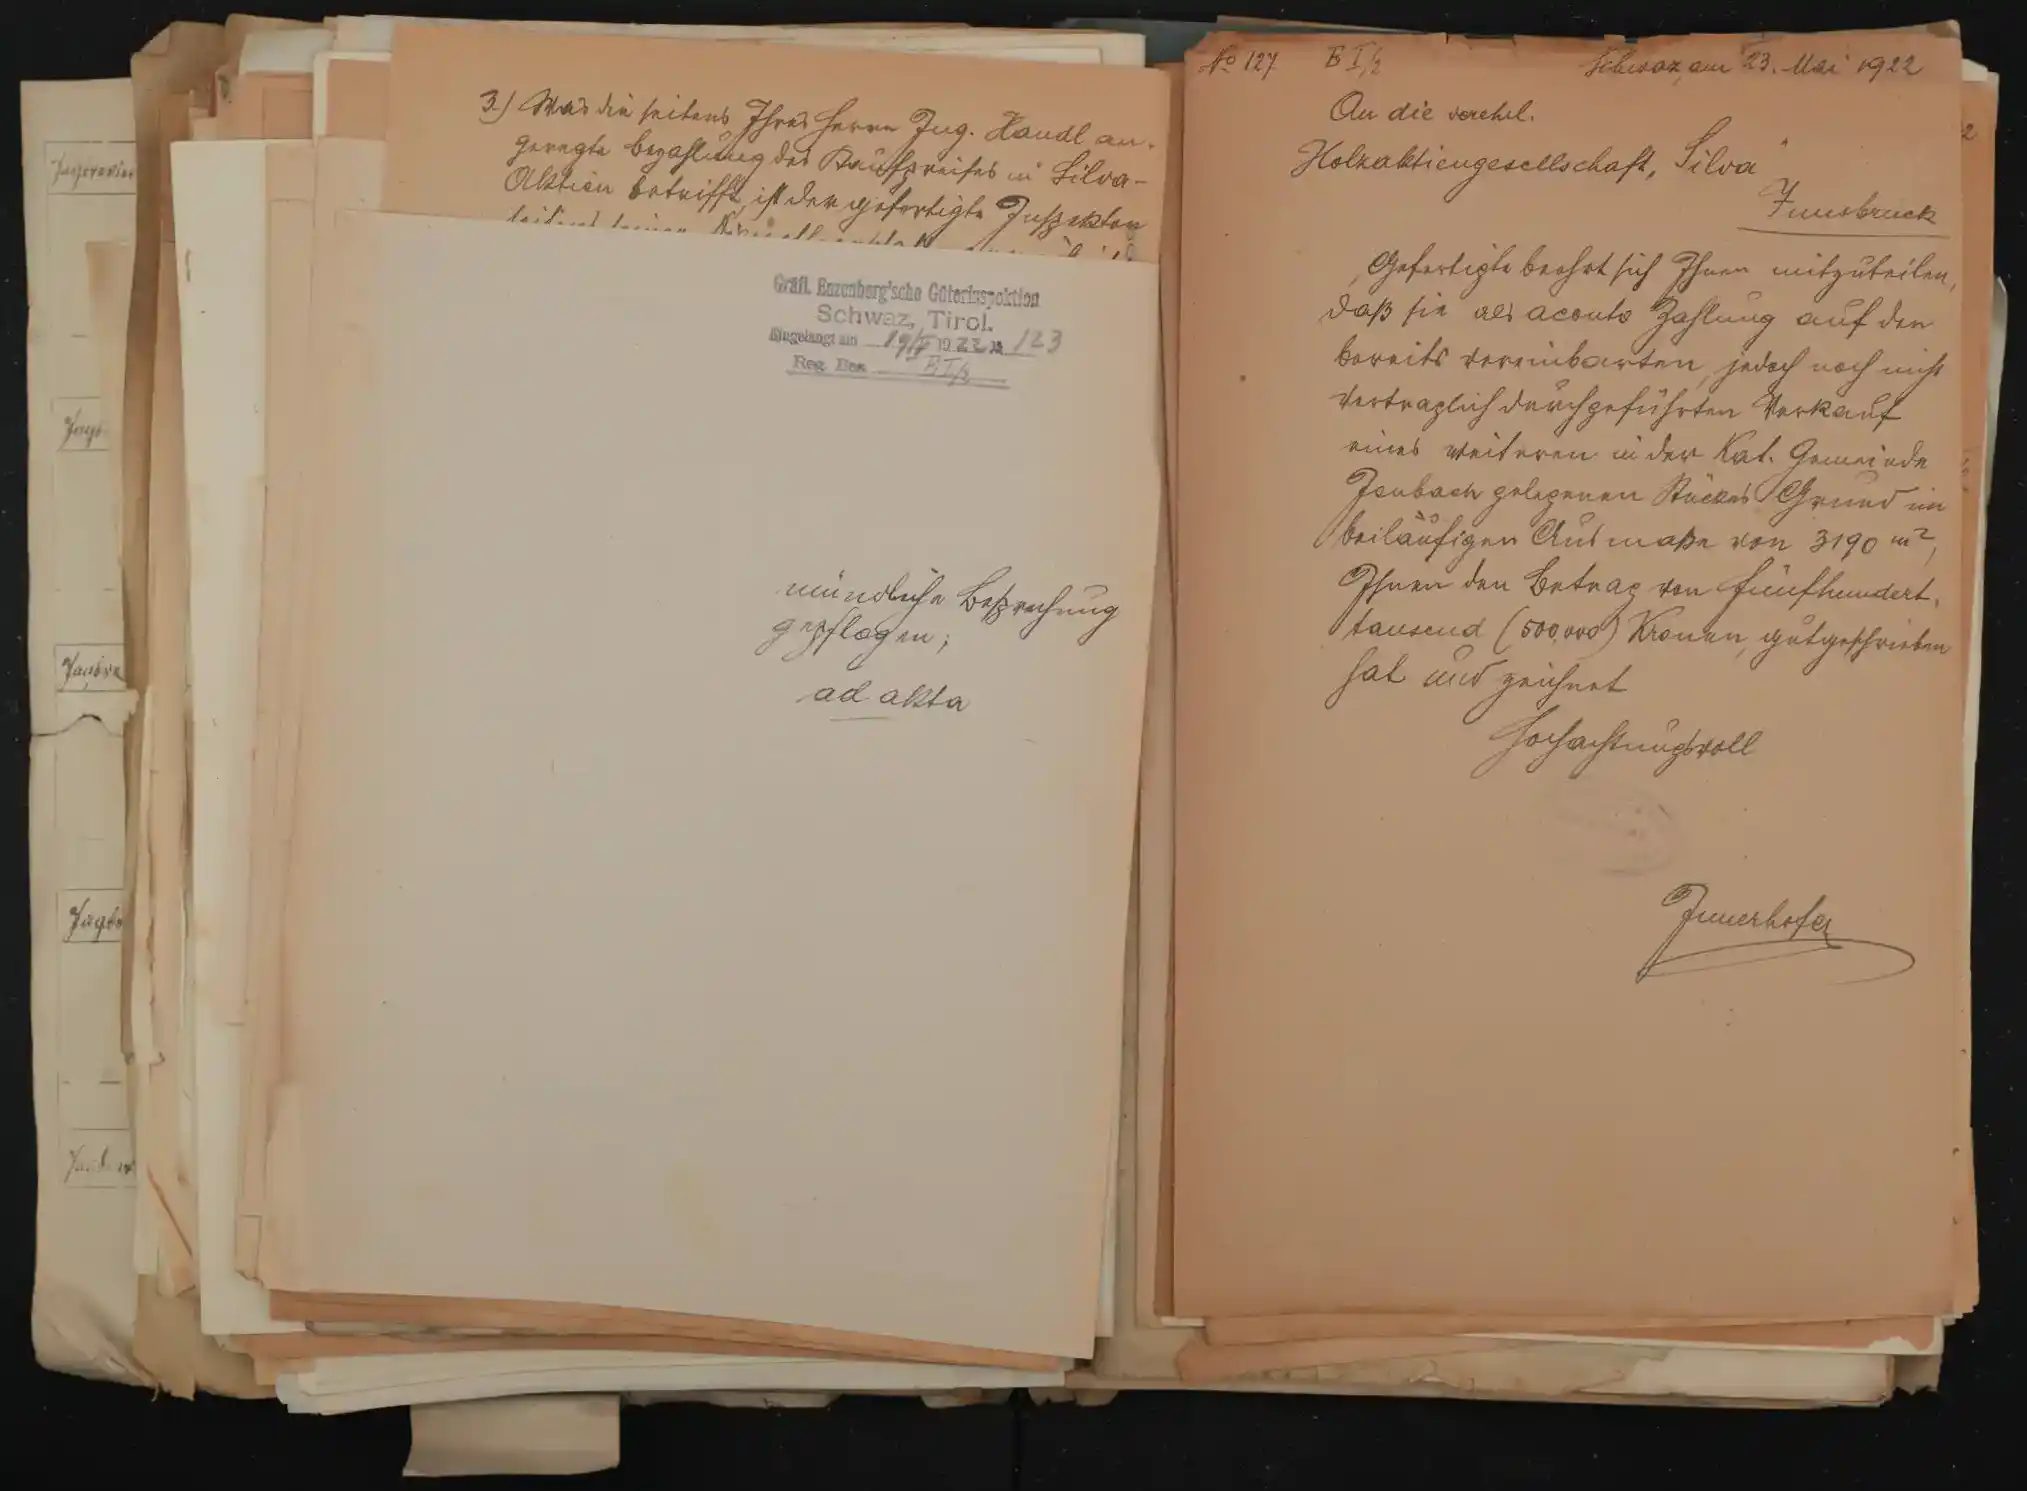 3.) Was die seitens Ihres Herrn Ing. Handl an-
geregte Bezahlung des Kaufpreises in Silva-
Aktien betrifft, ist der gefertigte Inspektor
Gräfl. Enzenberg'sche Güterinspektion
Schwaz, Tirol.
Eingelangt am 19/V 1922 № 123
Reg. Bez. E I/2
mündliche Besprechung
gepflogen;
ad akta
Jagdrevier
No 127 E I/2 Schwaz, am 23. Mai 1922
An die verehrl.
Holzaktiengesellschaft „Silva"
Innsbruck
Gefertigte beehrt sich Ihnen mitzuteilen,
daß sie als aconto Zahlung auf den
bereits vereinbarten, jedoch noch nicht
vertraglich durchgeführten Verkauf
eines weiteren in der Kat. Gemeinde
Jenbach gelegenen Stückes Grund im
beiläufigen Ausmaße von 3190 m²,
Ihnen den Betrag von fünfhundert-
tausend (500,000) Kronen, gutgeschrieben
hat und zeichnet
Hochachtungsvoll
Innerhofer